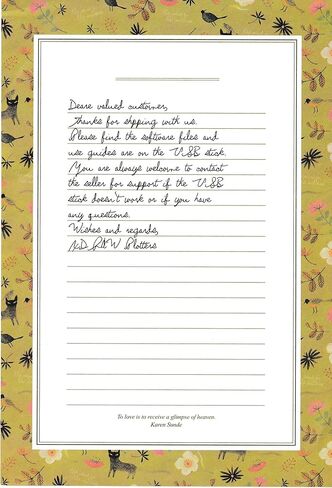 Deare valued customer,
Thanks for shpping with us.
Please find the software files and
use guides are on the USB stick.
You are always welcome to contact
the seller for support if the USB
stick doesn't work or if you have
any questions.
Wishes and regards,
Plotters
To love is to receive a glimpse of heaven.
Karen Sunde